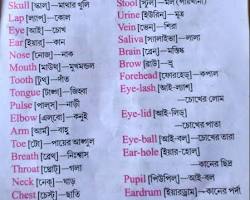 Skull [স্কাল]—মাথার খুলি
Lap [ল্যাপ]—কোল
Eye [আই]—চোখ
Ear [ইয়ার]—কান
Nose [নোজ]—নাক
Mouth [মাউথ]—মুখমন্ডল
Tooth [টুথ]—দাঁত
Tongue [টাঙ্গ]—জিহ্বা
Pulse [পালস]—নাড়ী
Elbow [এলবো]—কনুই
Arm [আর্ম]—বাহু
Toe [টো]—পায়ের আঙ্গুল
Breath [ব্রেথ]—নিঃশ্বাস
Throat [থ্রোট]—গলা
Neck [নেক]—ঘাড়
Chest [চেস্ট]—ছাতি
Stool [স্টুল]—মল (পায়খানা)
Urine [ইউরিন]—মূত্র
Vein [ভেন]—শিরা
Saliva [স্যালাইভা]—লালা
Brain [ব্রেন]—মস্তিষ্ক
Brow [ব্রাউ]—ভ্রূ
Forehead [ফোরহেড]—কপাল
Eye-lash [আই-ল্যাশ]
—চোখের লোম
Eye-lid [আই-লিড]
—চোখের পাতা
Eye-ball [আই-বল]—চোখের তারা
Ear-hole [ইয়ার-হোল]
—কানের ছিদ্র
Pupil [পিউপিল]—আই-বল
Eardrum [ইয়ারড্রাম]—কানের পর্দা